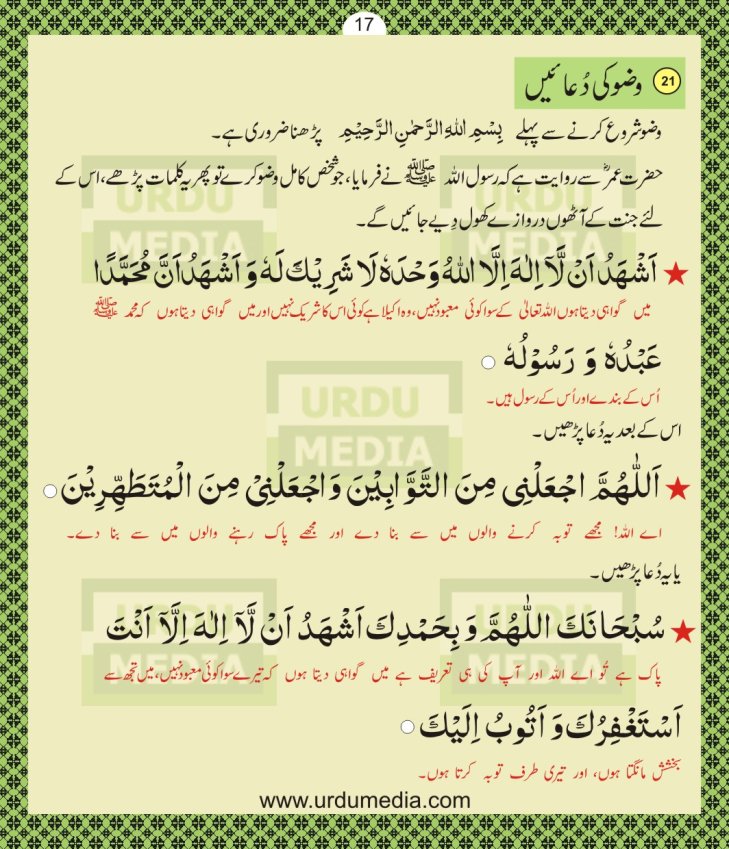 17
21 وضو کی دُعائیں
وضو شروع کرنے سے پہلے بِسْمِ اللهِ الرَّحْمٰنِ الرَّحِيْمِ پڑھنا ضروری ہے۔
حضرت عمرؓ سے روایت ہے کہ رسول اللہ ﷺ نے فرمایا، جو شخص کامل وضو کرے تو پھر یہ کلمات پڑھے، اس کے
لئے جنت کے آٹھوں دروازے کھول دیے جائیں گے۔
★ اَشْهَدُ اَنْ لَّآ اِلٰهَ اِلَّا اللهُ وَحْدَهٗ لَا شَرِيْكَ لَهٗ وَ اَشْهَدُ اَنَّ مُحَمَّدًا
میں گواہی دیتا ہوں اللہ تعالیٰ کے سوا کوئی معبود نہیں، وہ اکیلا ہے کوئی اس کا شریک نہیں اور میں گواہی دیتا ہوں کہ محمد ﷺ
عَبْدُهٗ وَ رَسُوْلُهٗ ○
اُس کے بندے اور اُس کے رسول ہیں۔
اس کے بعد یہ دُعا پڑھیں۔
★ اَللّٰهُمَّ اجْعَلْنِى مِنَ التَّوَّابِيْنَ وَاجْعَلْنِىْ مِنَ الْمُتَطَهِّرِيْنَ ○
اے اللہ! مجھے توبہ کرنے والوں میں سے بنا دے اور مجھے پاک رہنے والوں میں سے بنا دے۔
یا یہ دُعا پڑھیں۔
★ سُبْحَانَكَ اللّٰهُمَّ وَبِحَمْدِكَ اَشْهَدُ اَنْ لَّآ اِلٰهَ اِلَّآ اَنْتَ
پاک ہے تُو اے اللہ اور آپ کی ہی تعریف ہے میں گواہی دیتا ہوں کہ تیرے سوا کوئی معبود نہیں، میں تجھ سے
اَسْتَغْفِرُكَ وَ اَتُوبُ اِلَيْكَ ○
بخشش مانگتا ہوں، اور تیری طرف توبہ کرتا ہوں۔
www.urdumedia.com
URDU MEDIA
URDU MEDIA
URDU MEDIA
URDU MEDIA
URDU MEDIA